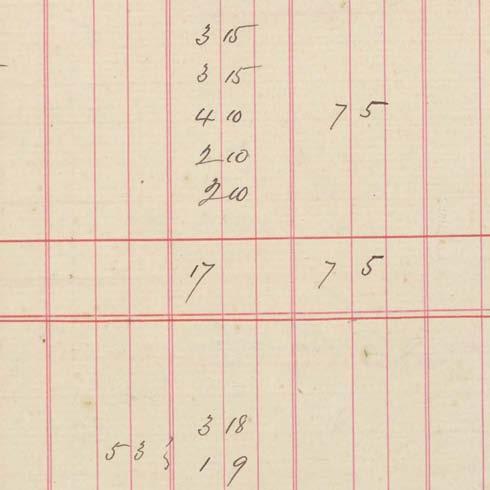 3 15
3 15
4 10 7 5
2 10
2 10
17 7 5
3 18
5 3 } 1 9